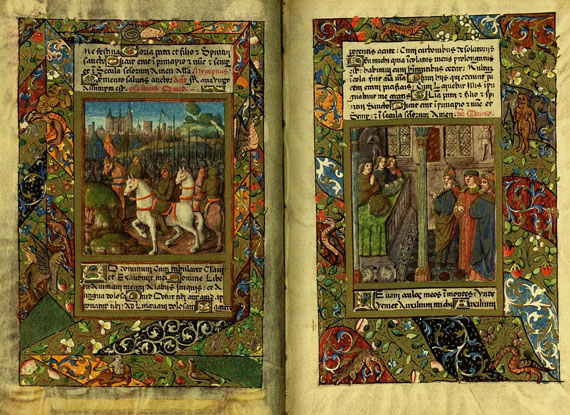 Me festina Gloria patri et filio et Spiritui
sancto Sicut erat i principio et nūc et semp
et i Secula seculorum Amen Alla. Hympnus
Memento salutis auctor
Dauid
AD dominum Cum tribularer Clamaui
et Exaudiuit me Domine Libe
ra Animam meam A labijs iniquis et A
lingua dolosa Quid Detur tibi aut quid ap
ponatur tibi Ad Linguam dolosam Sagitte
potentis acute Cum carbonibus desolatorijs
Heu michi quia incolatus meus prolongatus
est habitaui cum habitantibus cedar Multum
incola fuit aīa mea Cum hijs qui oderunt pa
cem eram pacificus Cum Loquebar illis im
pugnabant me gratis Gloria patri et filio et spi
ritui Sancto Sicut erat i principio et nūc et
Semp et i secula seculorum Amen Dauid
Leuaui oculos meos i montes Vnde
Veniet Auxilium michi Auxilium